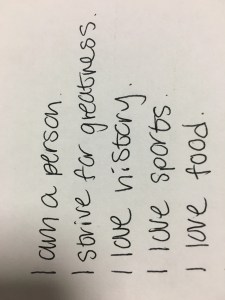 I am a person.
I strive for greatness.
I love history.
I love sports.
I love food.